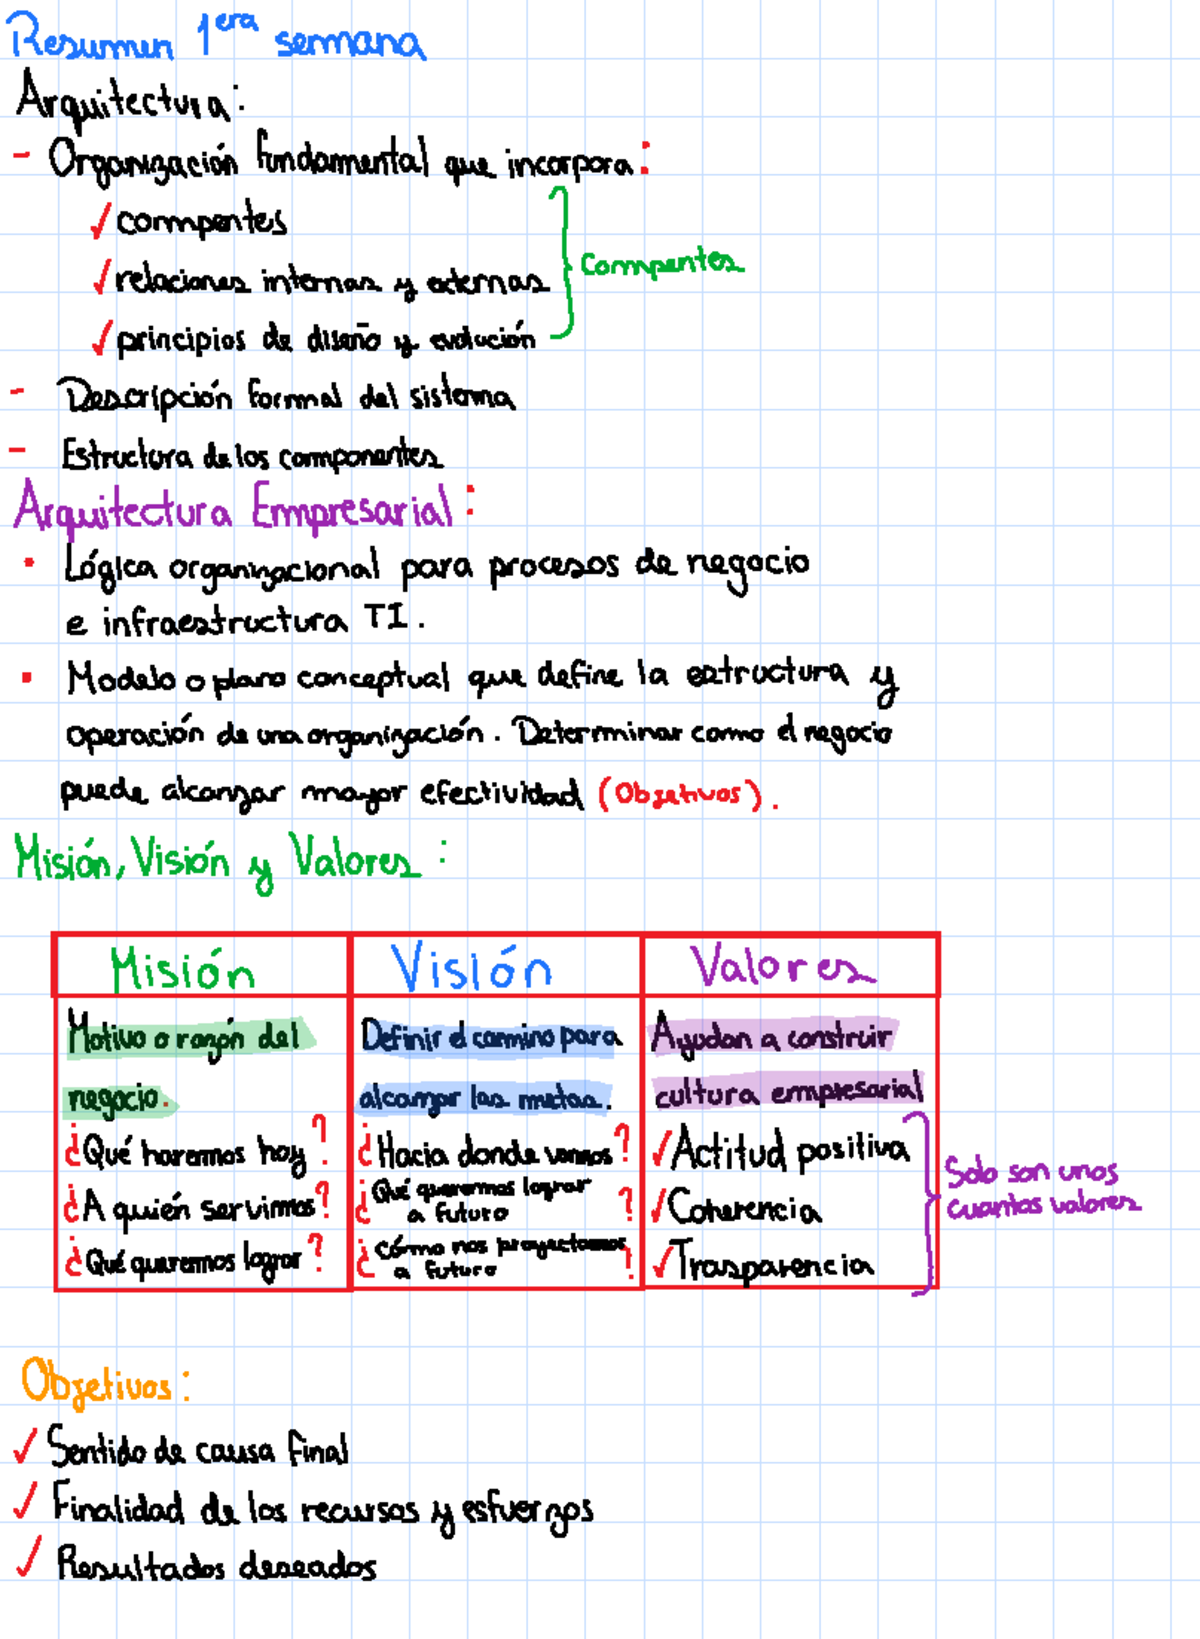 Resumen 1era semana
Arquitectura:
- Organización fundamental que incorpora:
✓ compentes
✓ relaciones internas y externas
✓ principios de diseño y evolución
Compentes
- Descripción formal del sistema
- Estructura de los componentes
Arquitectura Empresarial:
• Lógica organizacional para procesos de negocio
e infraestructura TI.
• Modelo o plano conceptual que define la estructura y
operación de una organización. Determinar como el negocio
puede alcanzar mayor efectividad (Objetivos).
Misión, Visión y Valores:
Misión Visión Valores
Motivo o razón del
negocio.
¿Qué haremos hoy?
¿A quién servimos?
¿Qué queremos lograr?
Definir el camino para
alcanzar las metas.
¿Hacia donde vamos?
¿Qué queremos lograr
a futuro?
¿Cómo nos proyectamos
a futuro?
Ayudan a construir
cultura empresarial
✓ Actitud positiva
✓ Coherencia
✓ Trasparencia
Solo son unos
cuantos valores
Objetivos:
✓ Sentido de causa final
✓ Finalidad de los recursos y esfuerzos
✓ Resultados deseados